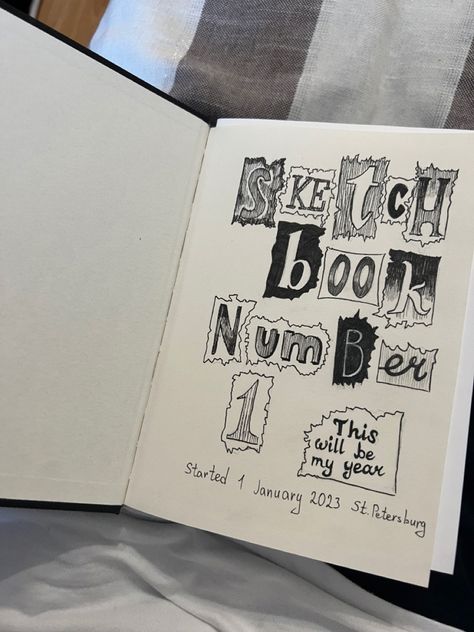 SKEtCH
book
NumBer
1
This
will be
my year
Started 1 January 2023 St. Petersburg